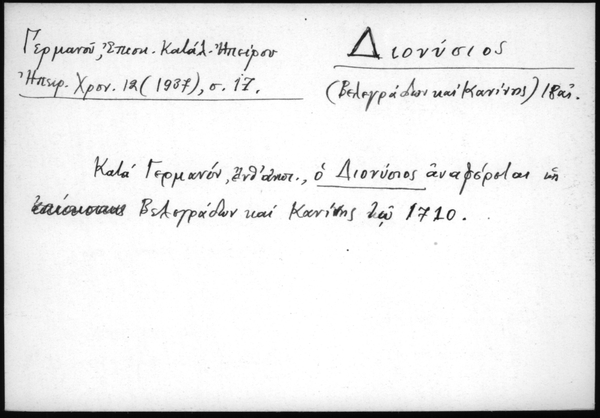 Γερμανοῦ, Ἐπισκ. Κατάλ. Ἠπείρου
Ἠπειρ. Χρον. 12 (1937), σ. 17.
Διονύσιος
(Βελεγράδων καί Κανίνης) 18 αἰ.
Κατά Γερμανόν, ἔνθ' ἀνωτ., ὁ Διονύσιος ἀναφέρεται ὡς
Βελεγράδων καί Κανίνης τῷ 1710.